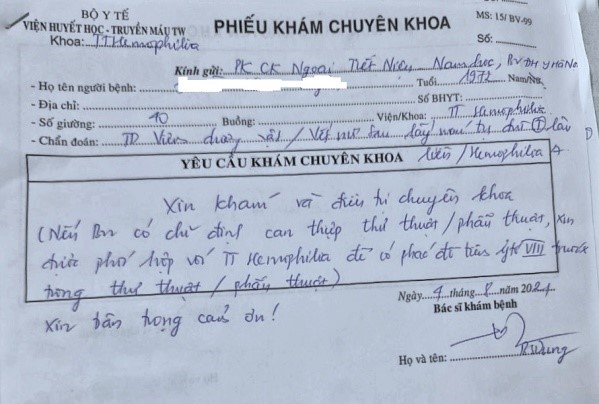 BỘ Y TẾ
VIỆN HUYẾT HỌC - TRUYỀN MÁU TW
Khoa: TT Hemophilia
PHIẾU KHÁM CHUYÊN KHOA
MS: 15/ BV-99
Số:
Kính gửi: PK CK Ngoại Tiết Niệu Nam học, BV ĐH Y Hà Nội
- Họ tên người bệnh: Tuổi 1972 Nam/Nữ
- Địa chỉ: Số BHYT:
- Số giường: 10 Buồng: Viện/Khoa: TT Hemophilia
- Chẩn đoán: TD Viêm dương vật / Vết mổ sau
liền / Hemophilia A
YÊU CẦU KHÁM CHUYÊN KHOA
Xin khám và điều trị chuyên khoa
(Nếu Bn có chỉ định can thiệp thủ thuật / phẫu thuật, xin
được phối hợp với TT Hemophilia để có phác đồ tiêm yếu tố VIII trước
trong thủ thuật / phẫu thuật)
Xin trân trọng cảm ơn!
Ngày 4 tháng 8 năm 2021
Bác sĩ khám bệnh
Họ và tên: